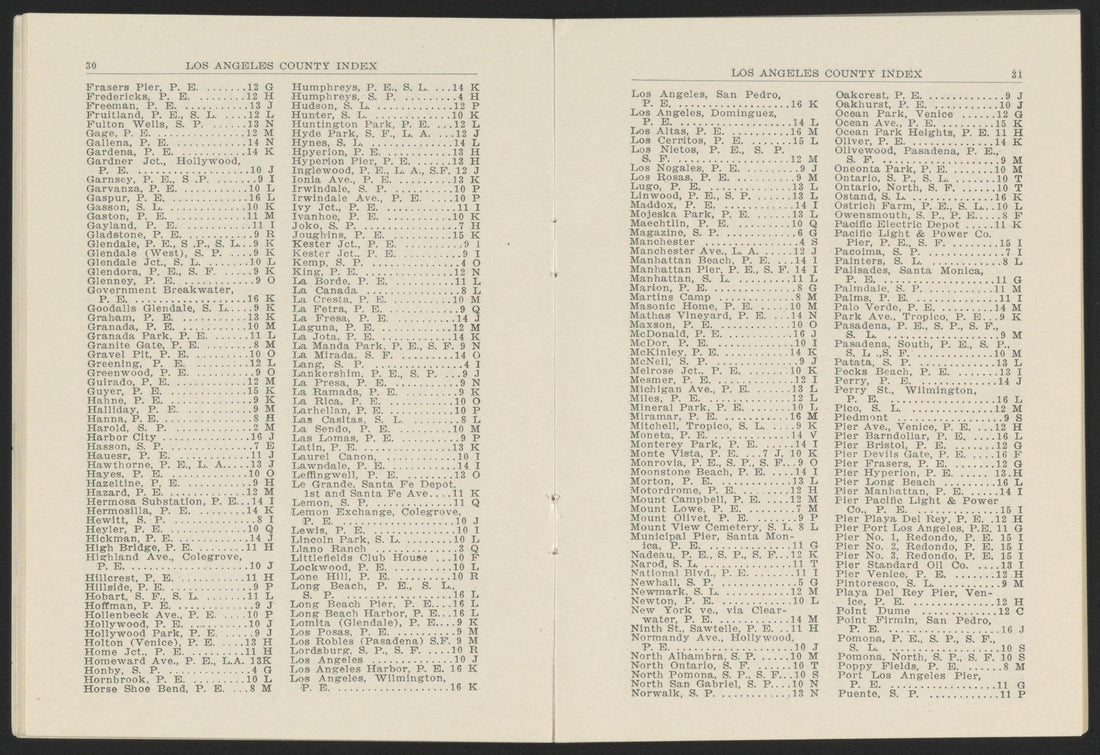 30 LOS ANGELES COUNTY INDEX
Frasers Pier, P. E. .......12 G
Fredericks, P. E. .........12 H
Freeman, P. E. ............13 J
Fruitland, P. E., S. L. ....12 L
Fulton Wells, S. P. .......13 N
Gage, P. E. ...............12 M
Gallena, P. E. ............14 N
Gardena, P. E. ............14 K
Gardner Jct., Hollywood,
P. E. ...................10 J
Garnsey, P. E., S .P. ......9 I
Garvanza, P. E. ...........10 L
Gaspur, P. E. .............16 L
Gasson, S. L. .............10 K
Gaston, P. E. .............11 M
Gayland, P. E. ............11 I
Gladstone, P. E. ...........9 R
Glendale, P. E., S .P., S. L...9 K
Glendale (West), S. P. .....9 K
Glendale Jct., S. L. .......10 L
Glendora, P. E., S. F. .....9 K
Glenney, P. E. .............9 O
Government Breakwater,
P. E. ...................16 K
Goodalls Glendale, S. L. ....9 K
Graham, P. E. .............13 K
Granada, P. E. ............10 M
Granada Park, P. E. .......11 L
Granite Gate, P. E. ........8 M
Gravel Pit, P. E. ..........10 O
Greening, P. E. ...........12 L
Greenwood, P. E. ..........9 O
Guirado, P. E. ............12 M
Guyer, P. E. ..............15 K
Hahne, P. E. ..............9 K
Halliday, P. E. ............9 M
Hanna, P. E. ..............8 H
Harold, S. P. ..............2 M
Harbor City ...............16 J
Hasson, S. P. ..............7 E
Hauesr, P. E. .............11 J
Hawthorne, P. E., L. A. ....13 J
Hayes, P. E. ..............10 O
Hazeltine, P. E. ...........9 H
Hazard, P. E. .............12 M
Hermosa Substation, P. E...14 I
Hermosilla, P. E. ..........14 K
Hewitt, S. P. ..............8 I
Heyler, P. E. .............10 Q
Hickman, P. E. ............14 J
High Bridge, P. E. ........11 H
Highland Ave., Colegrove,
P. E. ...................10 J
Hillcrest, P. E. ...........11 H
Hillside, P. E. ............9 P
Hobart, S. F., S. L. .......11 L
Hoffman, P. E. ............9 J
Hollenbeck Ave., P. E. ....10 P
Hollywood, P. E. ..........10 J
Hollywood Park, P. E. .....9 J
Holton (Venice), P. E. ....13 H
Home Jct., P. E. ..........11 H
Homeward Ave., P. E., L.A. 13K
Honby, S. P. ..............4 G
Hornbrook, P. E. ..........10 L
Horse Shoe Bend, P. E. ...8 M
Humphreys, P. E., S. L. ...14 K
Humphreys, S. P. ..........4 H
Hudson, S. L. .............12 P
Hunter, S. L. .............10 K
Huntington Park, P. E. ...12 L
Hyde Park, S. F., L. A. ...12 J
Hynes, S. L. ..............14 L
Hpyerion, P. E. ...........13 H
Hyperion Pier, P. E. ......13 H
Inglewood, P. E., L. A., S.F. 12 J
Ionia Ave., P. E. .........13 K
Irwindale, S. P. ..........10 P
Irwindale Ave., P. E. .....10 P
Ivy Jct., P. E. ...........11 I
Ivanhoe, P. E. ............10 K
Joko, S. P. ...............7 H
Joughins, P. E. ...........15 K
Kester Jct., P. E. .........9 I
Kester Jct., P. E. .........9 I
Kemp, S. P. ...............4 O
King, P. E. ...............12 N
La Borde, P. E. ...........11 L
La Canada .................8 L
La Cresta, P. E. ..........10 M
La Fetra, P. E. ...........9 Q
La Fresa, P. E. ...........14 J
Laguna, P. E. .............12 M
La Jota, P. E. ............14 K
La Manda Park, P. E., S. F. 9 N
La Mirada, S. F. ..........14 O
Lang, S. P. ...............4 I
Lankershim, P. E., S. P. ...9 J
La Presa, P. E. ...........9 N
La Ramada, P. E. ..........9 K
La Rica, P. E. ............10 O
Larhellan, P. E. ..........10 P
Las Casitas, S. L. .........8 L
La Sendo, P. E. ...........10 M
Las Lomas, P. E. ..........9 P
Latin, P. E. ..............13 K
Laurel Canon, .............10 I
Lawndale, P. E. ...........14 I
Leffingwell, P. E. ........13 O
Le Grande, Santa Fe Depot,
1st and Santa Fe Ave....11 K
Lemon, S. P. ..............11 Q
Lemon Exchange, Colegrove,
P. E. ...................10 J
Lewis, P. E. ..............10 I
Lincoln Park, S. L. .......10 L
Llano Ranch ...............3 Q
Littlefields Club House ...10 F
Lockwood, P. E. ...........10 L
Lone Hill, P. E. ..........10 R
Long Beach, P. E., S. L.,
S. P. ...................16 L
Long Beach Pier, P. E....16 L
Long Beach Harbor, P. E...16 L
Lomita (Glendale), P. E....9 K
Los Posas, P. E. ..........9 M
Los Robles (Pasadena) S.F. 9 M
Lordsburg, S. P., S. F. ....10 R
Los Angeles ...............10 J
Los Angeles Harbor, P. E. 16 K
Los Angeles, Wilmington,
P. E. ...................16 K
LOS ANGELES COUNTY INDEX 31
Los Angeles, San Pedro,
P. E. ...................16 K
Los Angeles, Dominguez,
P. E. ...................14 L
Los Altas, P. E. ..........16 M
Los Cerritos, P. E. .......15 L
Los Nietos, P. E., S. P.
S. F. ...................12 M
Los Nogales, P. E. ........9 J
Los Rosas, P. E. ..........9 M
Lugo, P. E. ...............13 L
Linwood, P. E., S. P. .....13 L
Maddox, P. E. .............14 I
Mojeska Park, P. E. .......13 L
Maechtlin, P. E. ..........10 Q
Magazine, S. P. ...........6 G
Manchester ................4 S
Manchester Ave., L. A. ....12 J
Manhattan Beach, P. E. ...14 I
Manhattan Pier, P. E., S. F. 14 I
Manhattan, S. L. ..........11 L
Marion, P. E. .............8 G
Martins Camp ..............8 M
Masonic Home, P. E. .......10 M
Mathas Vineyard, P. E. ....14 N
Maxson, P. E. .............10 O
McDonald, P. E. ...........16 J
McDor, P. E. ..............10 I
McKinley, P. E. ...........14 K
McNeil, S. P. .............9 J
Melrose Jct., P. E. .......10 K
Mesmer, P. E. .............12 I
Michigan Ave., P. E. ......13 L
Miles, P. E. ..............12 L
Mineral Park, P. E. .......10 L
Miramar, P. E. ............16 M
Mitchell, Tropico, S. L. ....9 K
Moneta, P. E. .............14 V
Monterey Park, P. E. ......14 I
Monte Vista, P. E. ...7 J, 10 K
Monrovia, P. E., S. P., S. F...9 O
Moonstone Beach, P. E. ....14 I
Morton, P. E. .............13 L
Motordrome, P. E. .........12 H
Mount Campbell, P. E. .....12 M
Mount Lowe, P. E. .........7 M
Mount Olivet, P. E. .......9 P
Mount View Cemetery, S. L. 8 L
Municipal Pier, Santa Mon-
ica, P. E. ...............11 G
Nadeau, P. E., S. P., S. F...12 K
Narod, S. L. ..............11 T
National Blvd., P. E. .....11 I
Newhall, S. P. ............5 G
Newmark, S. L. ............12 M
Newton, P. E. .............10 L
New York ve., via Clear-
water, P. E. .............14 M
Ninth St., Sawtelle, P. E. ..11 H
Normandy Ave., Hollywood,
P. E. ...................10 J
North Alhambra, S. P. .....10 M
North Ontario, S. F. ......10 T
North Pomona, S. P., S. F...10 S
North San Gabriel, S. P....10 N
Norwalk, S. P. ............13 N
Oakcrest, P. E. ...........9 J
Oakhurst, P. E. ...........10 J
Ocean Park, Venice ........12 G
Ocean Ave., P. E. .........15 K
Ocean Park Heights, P. E. 11 H
Oliver, P. E. .............14 K
Olivewood, Pasadena, P. E.,
S. F. ...................9 M
Oneonta Park, P. E. .......10 M
Ontario, S. P., S. L. .....10 T
Ontario, North, S. F. .....10 T
Ostand, S. L. .............16 K
Ostrich Farm, P. E., S. L...10 L
Owensmouth, S. P., P. E....8 F
Pacific Electric Depot .....11 K
Pacific Light & Power Co.
Pier, P. E., S. F. ........15 I
Pacoima, S. P. ............7 I
Painters, S. L. ...........8 L
Palisades, Santa Monica,
P. E. ...................11 G
Palmdale, S. P. ...........11 M
Palms, P. E. ..............11 I
Palo Verde, P. E. .........14 M
Park Ave., Tropico, P. E...9 K
Pasadena, P. E., S. P., S. F.,
S. L. ...................9 M
Pasadena, South, P. E., S. P.,
S. L .,S. F. .............10 M
Patata, S. P. .............13 L
Pecks Beach, P. E. ........13 I
Perry, P. E. ..............14 J
Perry St., Wilmington,
P. E. ...................16 L
Pico, S. L. ...............12 M
Piedmont ..................9 S
Pier Ave., Venice, P. E. ...12 H
Pier Barndollar, P. E. ....16 L
Pier Bristol, P. E. .......12 G
Pier Devils Gate, P. E. ....16 F
Pier Frasers, P. E. .......12 G
Pier Hyperion, P. E. ......13 H
Pier Long Beach ...........16 L
Pier Manhattan, P. E. .....14 I
Pier Pacific Light & Power
Co., P. E. ...............15 I
Pier Playa Del Rey, P. E. .12 H
Pier Port Los Angeles, P.E. 11 G
Pier No. 1, Redondo, P. E. 15 I
Pier No. 2, Redondo, P. E. 15 I
Pier No. 3, Redondo, P. E. 15 I
Pier Standard Oil Co. .....13 I
Pier Venice, P. E. ........12 H
Pintoresco, S. L. .........9 M
Playa Del Rey Pier, Ven-
ice, P. E. ...............12 H
Point Dume ................12 C
Point Firmin, San Pedro,
P. E. ...................16 J
Pomona, P. E., S. P., S. F.,
S. L. ...................10 S
Pomona, North, S. P., S. F. 10 S
Poppy Fields, P. E. .......8 M
Port Los Angeles Pier,
P. E. ...................11 G
Puente, S. P. .............11 P